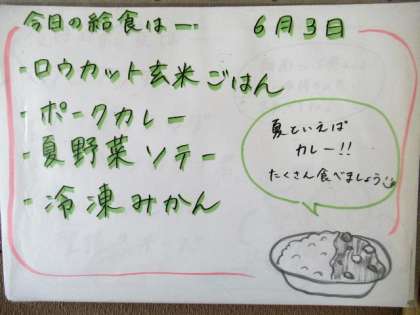 今日の給食は一… 6月3日
・ロウカット玄米ごはん
・ポークカレー
・夏野菜ソテー
・冷凍みかん
夏といえば
カレー!!
たくさん食べましょう